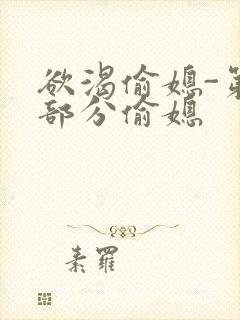 欲渴偷媳-第
部分偷媳
素羅